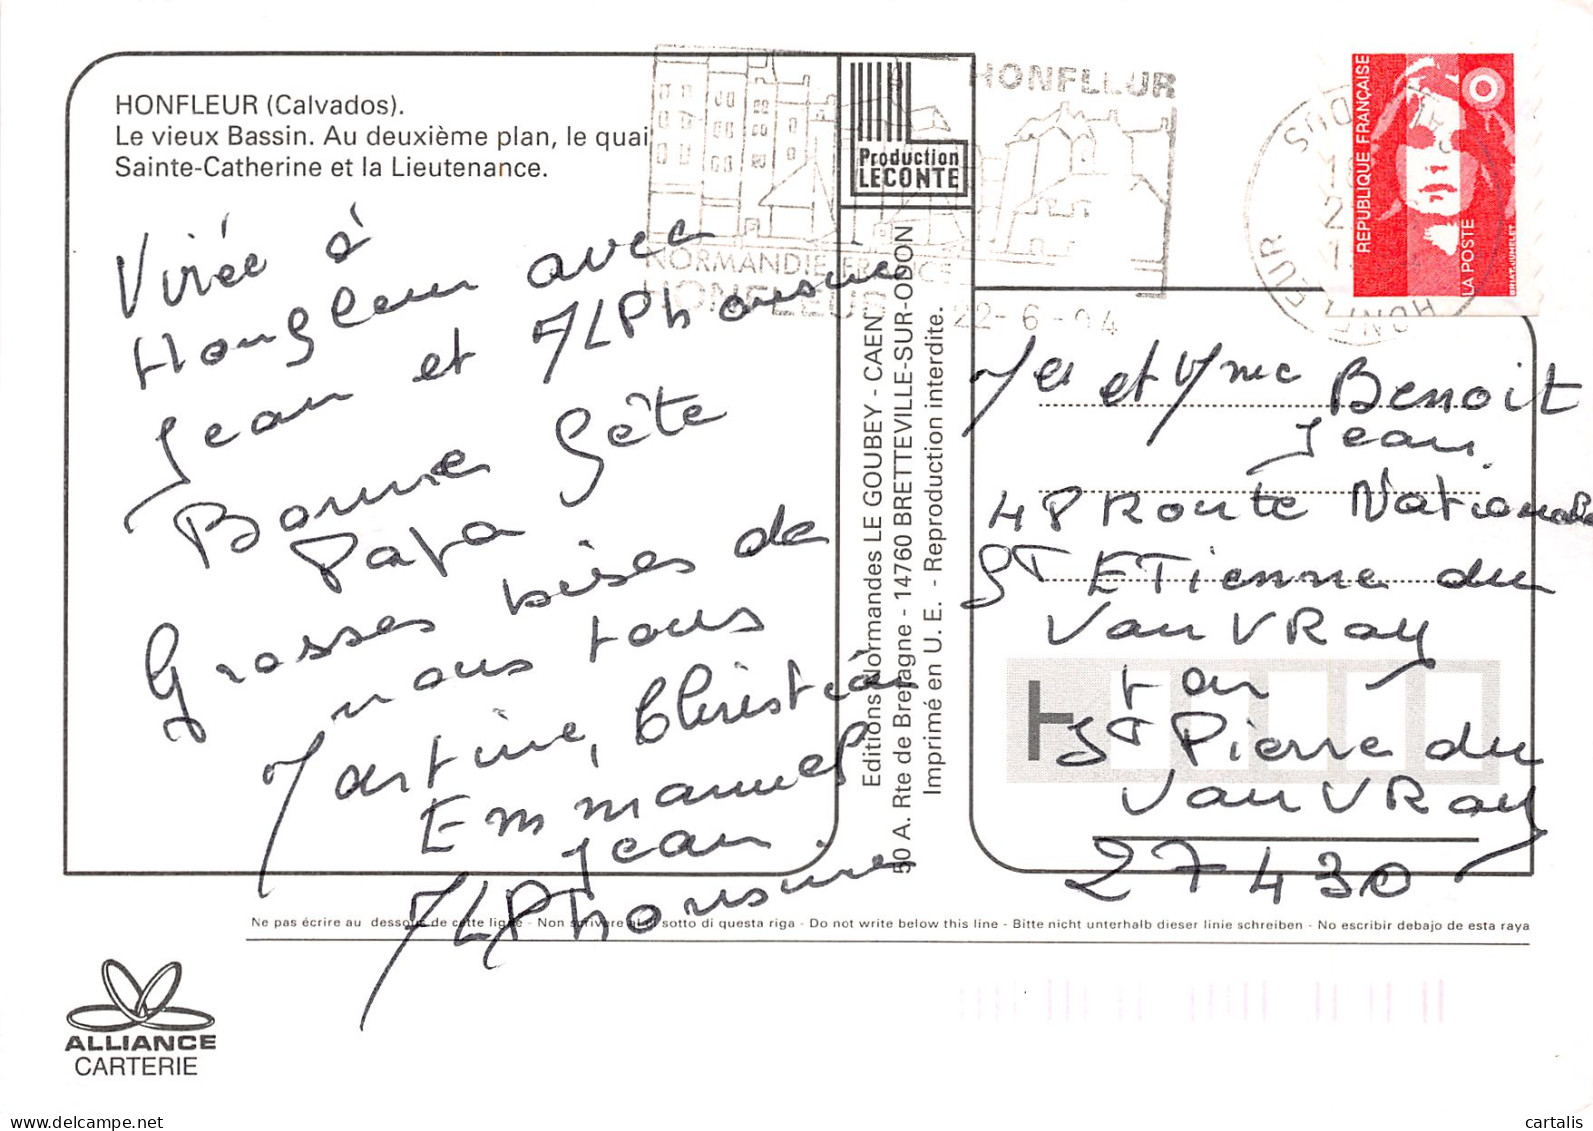 HONFLEUR (Calvados).
Le vieux Bassin. Au deuxième plan, le quai
Sainte-Catherine et la Lieutenance.
Virée à
Honfleur avec
Jean et ALPhonsine
Bonne Fête
Papa
Grosses bises de
nous tous
Martine, Christian
Emmanuel
Jean
ALPhonsine
Production
LECONTE
Editions Normandes LE GOUBEY - CAEN
50 A. Rte de Bretagne - 14760 BRETTEVILLE-SUR-ODON
Imprimé en U. E. - Reproduction interdite.
HONFLEUR
NORMANDIE-FRANCE
HONFLEUR
22-6-94
HONFLEUR
CALVADOS
REPUBLIQUE FRANÇAISE
LA POSTE
BRIAT-JUMELET
Mr et Mme Benoit
Jean
48 Route Nationale
St ETienne du
VauVRay
par
St Pierre du
VauVRay
27430
Ne pas écrire au dessous de cette ligne - Non scrivere al di sotto di questa riga - Do not write below this line - Bitte nicht unterhalb dieser linie schreiben - No escribir debajo de esta raya
ALLIANCE
CARTERIE
www.delcampe.net
cartalis